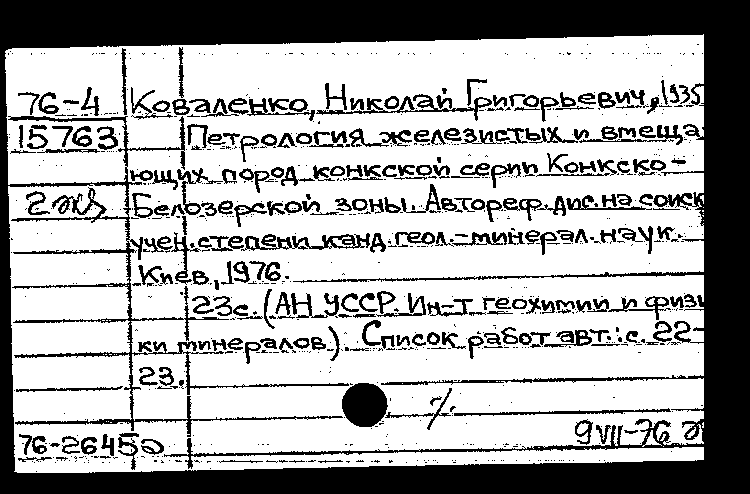 76-4 Коваленко, Николай Григорьевич, 1935
15763 Петрология железистых и вмеща-
ющих пород конкской серии Конкско-
2 экз Белозерской зоны. Автореф. дис. на соиск
учен. степени канд. геол.-минерал. наук.
Киев, 1976.
23с. (АН УССР. Ин-т геохимии и физи
ки минералов). Список работ авт.: с. 22-
23.
76-26452
9 VII-76